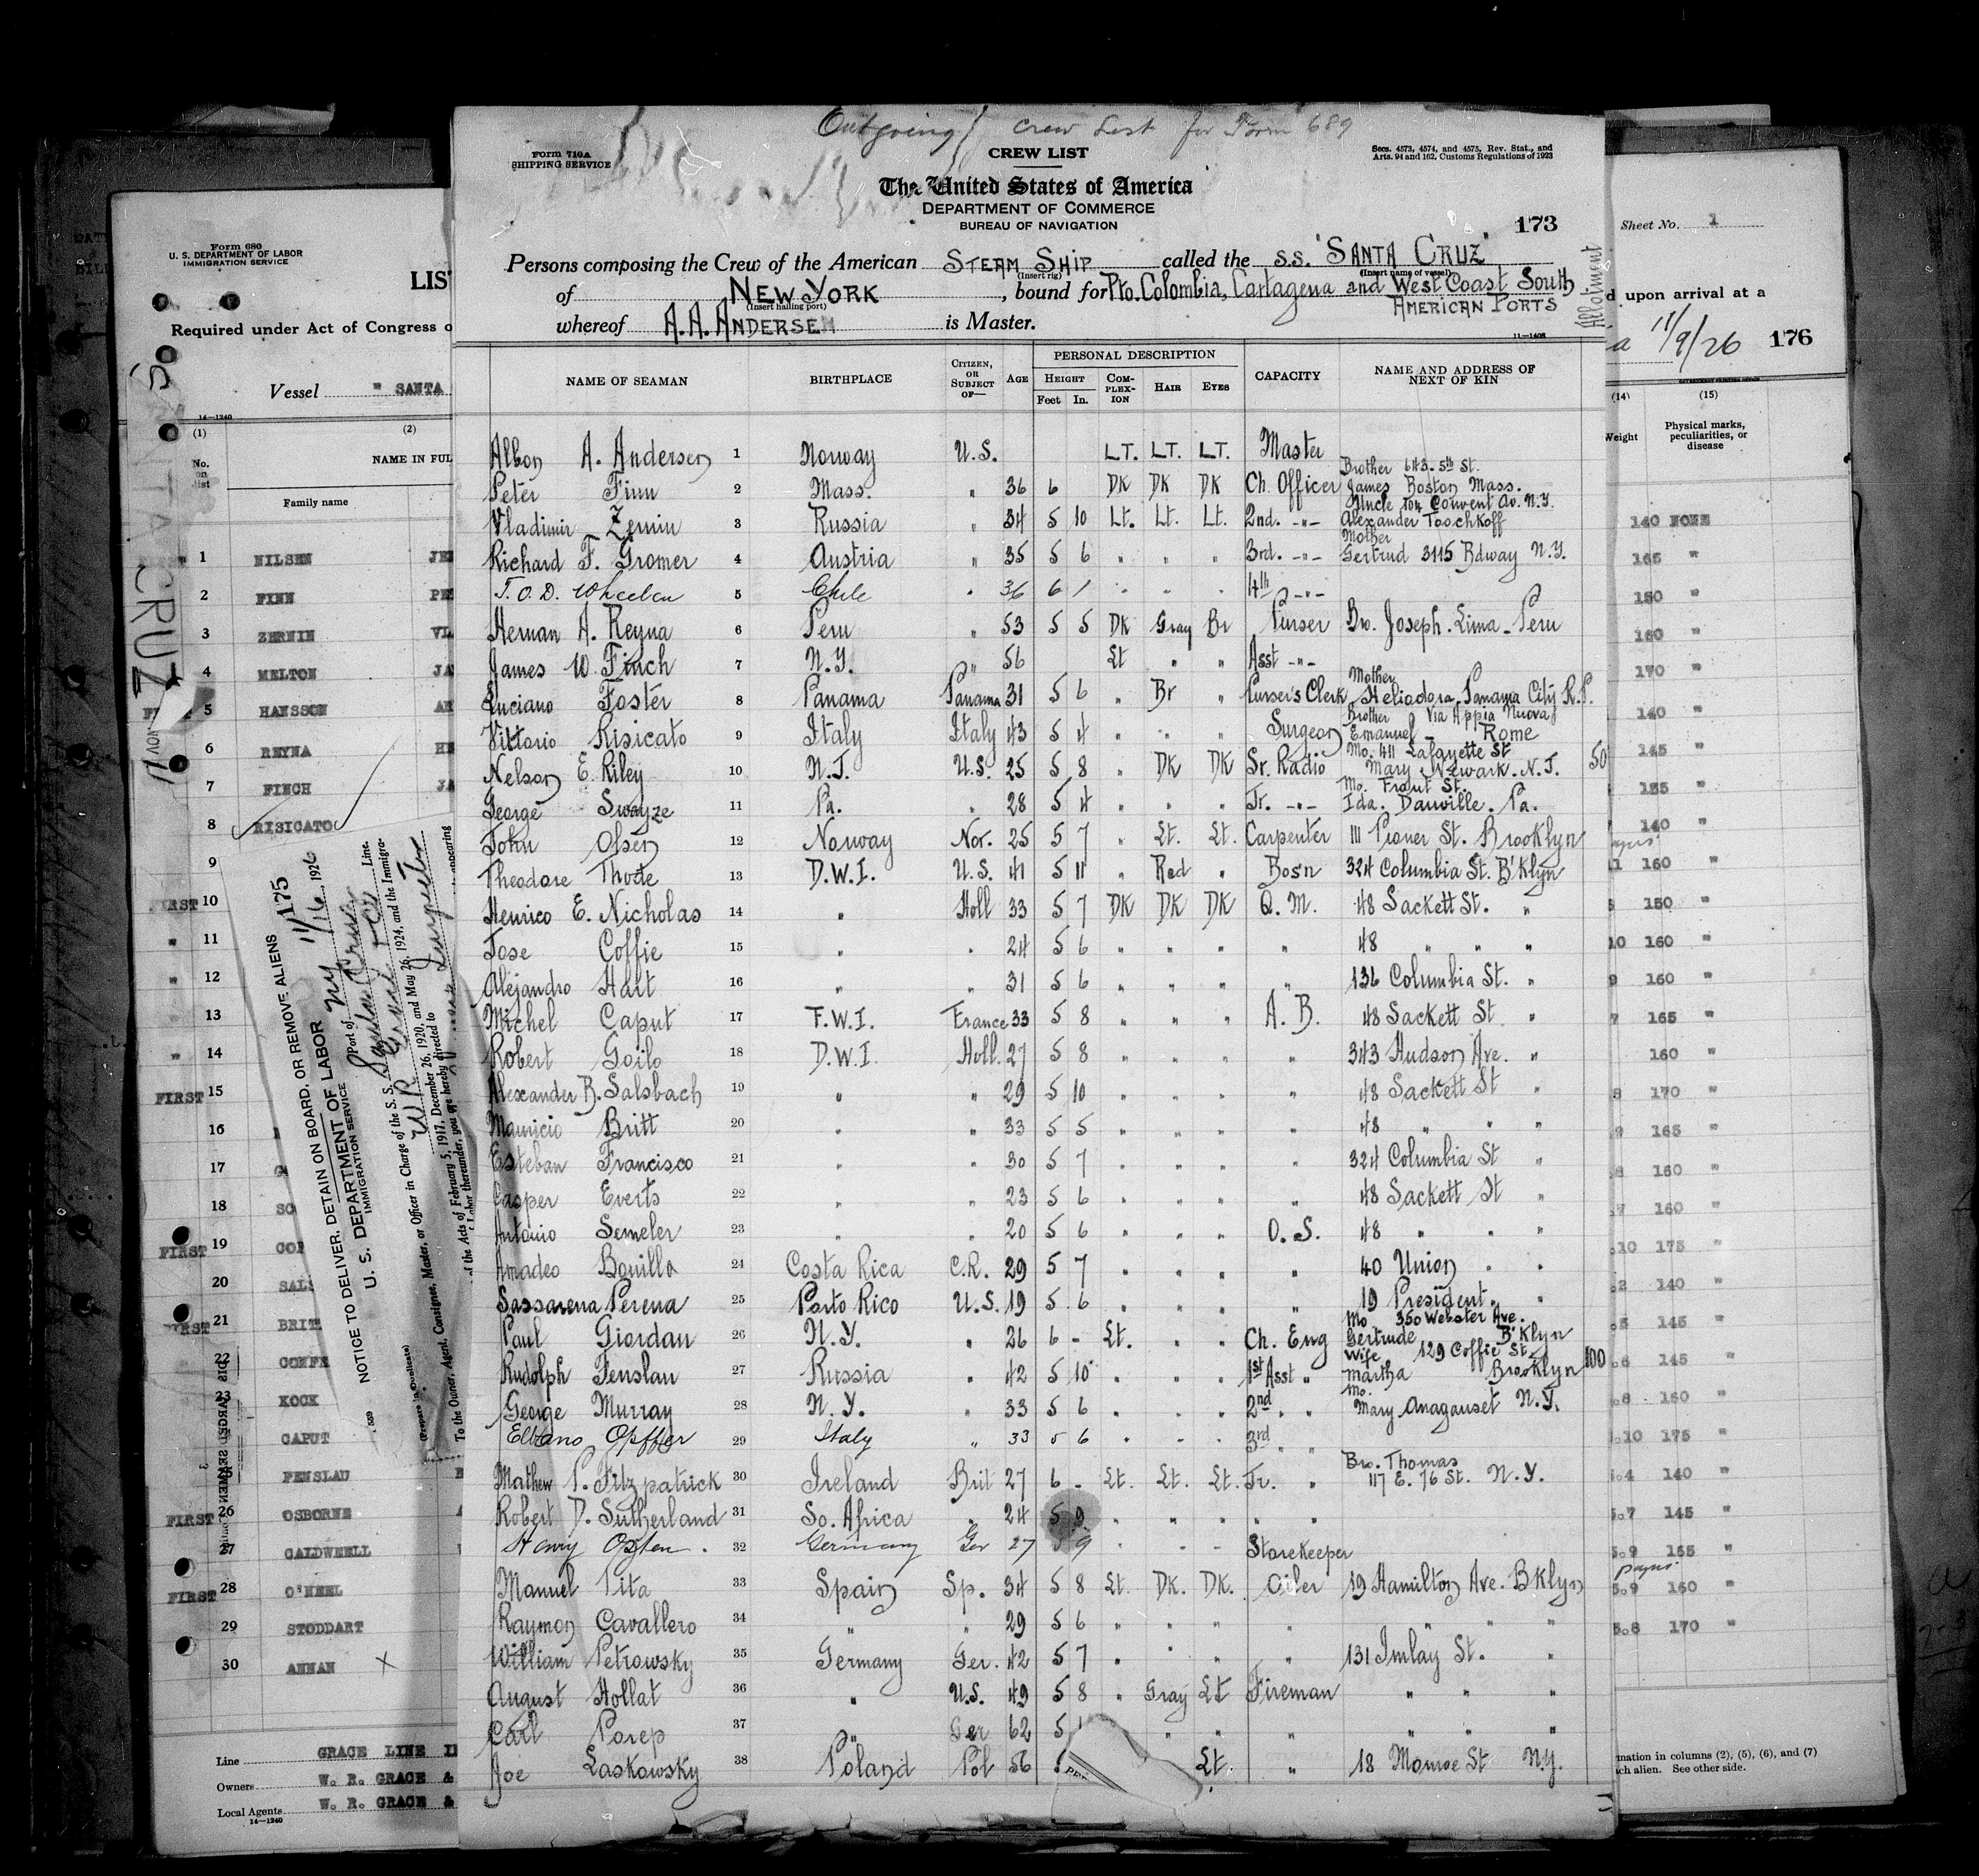 Outgoing crew List for Form 689
Form 710A
SHIPPING SERVICE
CREW LIST
Secs. 4573, 4574, and 4575, Rev. Stat., and
Arts. 94 and 162, Customs Regulations of 1923
The United States of America
DEPARTMENT OF COMMERCE
BUREAU OF NAVIGATION
173
Persons composing the Crew of the American STEAM SHIP called the S.S. "SANTA CRUZ"
(Insert rig) (Insert name of vessel)
of NEW YORK, bound for Pto. Colombia, Cartagena and West Coast South
(Insert hailing port) AMERICAN PORTS
whereof A. A. ANDERSEN is Master.
11—1408
Allotment
NAME OF SEAMAN BIRTHPLACE CITIZEN, OR SUBJECT OF— AGE PERSONAL DESCRIPTION HEIGHT Feet In. COMPLEXION HAIR EYES CAPACITY NAME AND ADDRESS OF NEXT OF KIN
Albon A. Andersen 1 Norway U.S. LT. LT. LT. Master
Brother 643-5th St.
Peter Finn 2 Mass. " 36 6 DK DK DK Ch. Officer James Boston Mass.
Uncle 504 Convent Av. N.Y.
Vladimir Zernin 3 Russia " 34 5 10 Lt. Lt. Lt. 2nd. -"- Alexander Toschkoff
Mother
Richard F. Gromer 4 Austria " 35 5 6 " " " 3rd. -"- Gertrud 3115 Bdway N.Y.
T. O. D. Wheelen 5 Chile " 36 6 1 " " " 4th -"-
Hernan A. Reyna 6 Peru " 53 5 5 DK Gray Br Purser Bro. Joseph. Lima - Peru
James W. Finch 7 N.Y. " 56 Lt " " Asst -"-
Mother
Luciano Foster 8 Panama Panama 31 5 6 " Br " Purser's Clerk Heliodora, Panama City R.P.
Brother Via Appia Nuova
Vittorio Risicato 9 Italy Italy 43 5 4 " " " Surgeon Emanuel - Rome
Mo. 411 Lafayette St
Nelson E. Riley 10 N.J. U.S. 25 5 8 " DK DK Sr. Radio Mary Newark. N.J. 50
Mo. Front St.
George Swayze 11 Pa. " 28 5 4 " " " Jr. -"- Ida. Danville. Pa.
John Olsen 12 Norway Nor. 25 5 7 " Lt. Lt. Carpenter 111 Pioner St. Brooklyn
Theodore Thode 13 D.W.I. U.S. 41 5 11 " Red " Bosn 324 Columbia St. B'klyn
Henrico E. Nicholas 14 " Holl 33 5 7 DK DK DK Q. M. 48 Sackett St. "
Jose Coffie 15 " " 24 5 6 " " " " 48 " " "
Alejandro Hart 16 " " 31 5 6 " " " " 136 Columbia St. "
Michel Caput 17 F.W.I. France 33 5 8 " " " A. B. 48 Sackett St "
Robert Goilo 18 D.W.I. Holl. 27 5 8 " " " " 343 Hudson Ave. "
Alexander B. Salsbach 19 " " 29 5 10 " " " " 48 Sackett St "
Mauricio Britt 20 " " 33 5 5 " " " " 48 " " "
Esteban Francisco 21 " " 30 5 7 " " " " 324 Columbia St "
Casper Everts 22 " " 23 5 6 " " " " 48 Sackett St "
Antonio Semeler 23 " " 20 5 6 " " " O. S. 48 " " "
Amadeo Bonilla 24 Costa Rica C.R. 29 5 7 " " " " 40 Union " "
Sassarena Perena 25 Porto Rico U.S. 19 5 6 " " " " 19 President " "
Mo 350 Webster Ave.
Paul Giordan 26 N.Y. " 26 6 - Lt. " " Ch. Eng Gertrude B'klyn
Wife 129 Coffie St.
Rudolph Fenslau 27 Russia " 42 5 10 " " " 1st Asst " Martha Brooklyn 100
Mo.
George Murray 28 N.Y. " 33 5 6 " " " 2nd " " Mary Anaganset N.Y.
Elbano Opffer 29 Italy " 33 5 6 " " " 3rd " "
Bro. Thomas
Mathew P. Fitzpatrick 30 Ireland Brit 27 6 - Lt. Lt. Lt. Jr. " 117 E. 76 St. N.Y.
Robert D. Sutherland 31 So. Africa " 24 5 9 " " " " "
Henry Osten 32 Germany Ger 27 5 9 " " " Storekeeper
Manuel Pita 33 Spain Sp. 34 5 8 Lt. DK. DK. Oiler 19 Hamilton Ave. Bklyn
Raymon Cavallero 34 " " 29 5 6 " " " " " " "
William Petrowsky 35 Germany Ger. 42 5 7 " " " " 131 Imlay St. "
August Hollat 36 " U.S. 49 5 8 " Gray Lt Fireman " " "
Carl Porep 37 " Ger 62 5 " " " " " "
Joe Laskowsky 38 Poland Pol 56 Lt. " 18 Monroe St N.Y.
Form 680
U. S. DEPARTMENT OF LABOR
IMMIGRATION SERVICE
LIS
Required under Act of Congress o
Vessel " SANTA
14—1240
(1) (2)
No. on list NAME IN FUL
Family name
1 NILSEN JE
2 FINN PE
3 ZERNIN VL
4 MELTON JA
5 HANSSON AR
6 REYNA HE
7 FINCH JA
8 RISICATO
9
FIRST 10
" 11
" 12
13
" 14
FIRST 15
16
17
18 SO
FIRST 19
20 SALS
FIRST 21 BRIT
22
23 KOCK
CAPUT
FENSLAU
FIRST 26 OSBORNE
27 CALDWEELL
FIRST 28 O'NEEL
29 STODDART
30 ANNAN X
Line GRACE LINE I
Owners W. R. GRACE &
Local Agents W. R. GRACE &
14—1240
SANTA CRUZ
NOV 11
11/175
NOTICE TO DELIVER, DETAIN ON BOARD, OR REMOVE ALIENS
U. S. DEPARTMENT OF LABOR
IMMIGRATION SERVICE
Port of NY 11/16, 1926
(Prepare in Duplicate)
To the Owner, Agent, Consignee, Master, or Officer in Charge of the S. S. Santa Cruz Line.
W R Grace & Co
of the Acts of February 5, 1917, December 26, 1920, and May 26, 1924, and the Immigra-
of Labor thereunder, you are hereby directed to
Sheet No. 1
d upon arrival at a
11/9/26 176
(14) (15)
Weight Physical marks, peculiarities, or disease
140 NONE
165 "
150 "
160 "
170 "
140 "
145 "
155 "
140 "
160 "
150 "
160 "
160 "
165 "
160 "
170 "
165 "
160 "
160 "
175 "
140 "
145 "
145 "
160 "
175 "
140 "
145 "
165 "
160 "
170 "
mation in columns (2), (5), (6), and (7)
ch alien. See other side.